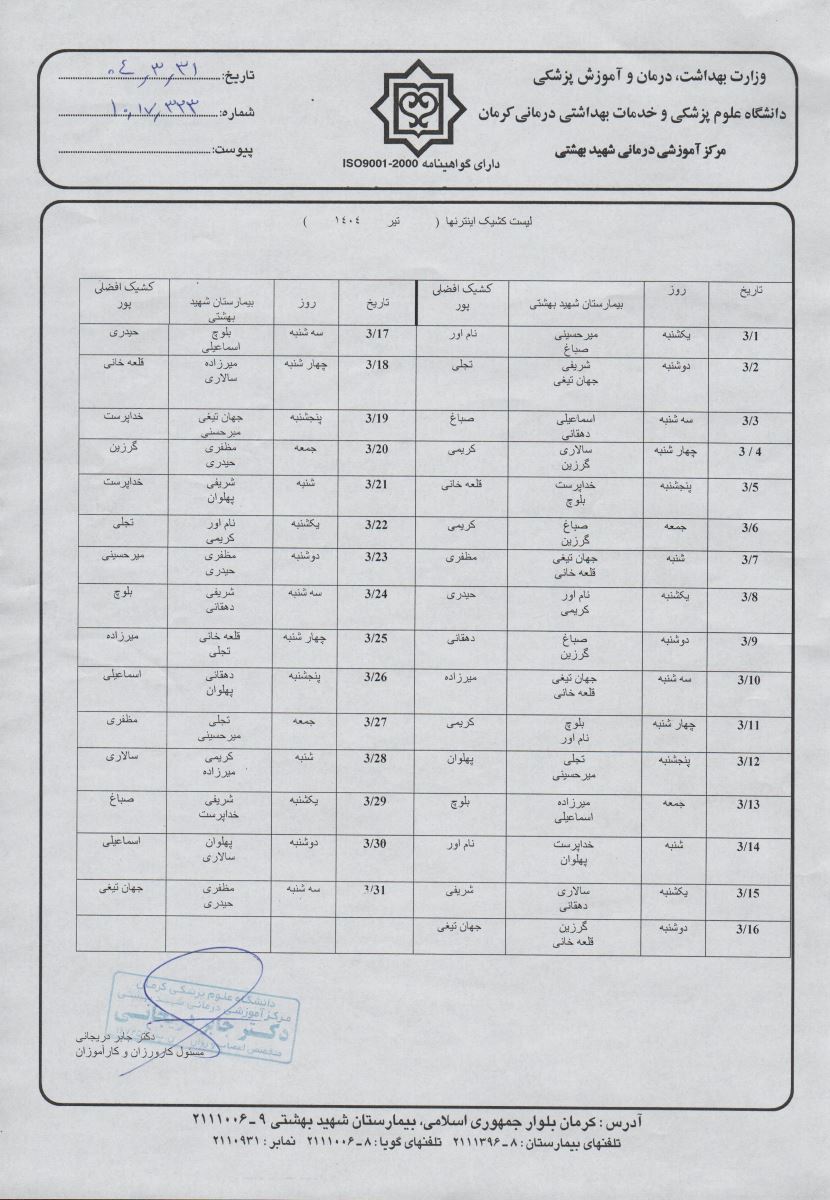 وزارت بهداشت، درمان و آموزش پزشکی
دانشگاه علوم پزشکی و خدمات بهداشتی درمانی کرمان
مرکز آموزشی درمانی شهید بهشتی
دارای گواهینامه ISO9001-2000
تاریخ: ۰۴,۳,۳۱
شماره: ۱۰,۱۷,۳۲۳
پیوست:
لیست کشیک اینترنها ( تیر ۱٤۰٤ )
تاریخ روز بیمارستان شهید بهشتی کشیک افضلی پور تاریخ روز بیمارستان شهید بهشتی کشیک افضلی پور
3/1 یکشنبه میرحسینی صباغ نام اور 3/17 سه شنبه بلوچ اسماعیلی حیدری
3/2 دوشنبه شریفی جهان تیغی تجلی 3/18 چهار شنبه میرزاده سالاری قلعه خانی
3/3 سه شنبه اسماعیلی دهقانی صباغ 3/19 پنجشنبه جهان تیغی میرحسنی خداپرست
3 / 4 چهار شنبه سالاری گرزین کریمی 3/20 جمعه مظفری حیدری گرزین
3/5 پنجشنبه خداپرست بلوچ قلعه خانی 3/21 شنبه شریفی پهلوان خداپرست
3/6 جمعه صباغ گرزین کریمی 3/22 یکشنبه نام اور کریمی تجلی
3/7 شنبه جهان تیغی قلعه خانی مظفری 3/23 دوشنبه مظفری حیدری میرحسینی
3/8 یکشنبه نام اور کریمی حیدری 3/24 سه شنبه شریفی دهقانی بلوچ
3/9 دوشنبه صباغ گرزین دهقانی 3/25 چهار شنبه قلعه خانی تجلی میرزاده
3/10 سه شنبه جهان تیغی قلعه خانی میرزاده 3/26 پنجشنبه دهقانی پهلوان اسماعیلی
3/11 چهار شنبه بلوچ نام اور کریمی 3/27 جمعه تجلی میرحسینی مظفری
3/12 پنجشنبه تجلی میرحسینی پهلوان 3/28 شنبه کریمی میرزاده سالاری
3/13 جمعه میرزاده اسماعیلی بلوچ 3/29 یکشنبه شریفی خداپرست صباغ
3/14 شنبه خداپرست پهلوان نام اور 3/30 دوشنبه پهلوان سالاری اسماعیلی
3/15 یکشنبه سالاری دهقانی شریفی 3/31 سه شنبه مظفری حیدری جهان تیغی
3/16 دوشنبه گرزین قلعه خانی جهان تیغی
دانشگاه علوم پزشکی کرمان
مرکز آموزشی درمانی شهید بهشتی
دکتر جابر دریجانی
متخصص اعصاب و روان
دکتر جابر دریجانی
مسئول کارورزان و کارآموزان
آدرس : کرمان بلوار جمهوری اسلامی، بیمارستان شهید بهشتی ۹ ـ ۲۱۱۱۰۰۶
تلفنهای بیمارستان : ۸ ـ ۲۱۱۱۳۹۶ تلفنهای گویا : ۸ ـ ۲۱۱۱۰۰۶ نمابر : ۲۱۱۰۹۳۱